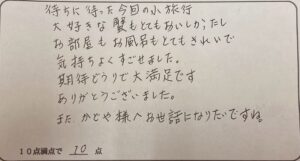 待ちに待った今回の小旅行
大好きな蟹もとてもおいしかったし
お部屋もお風呂もとてもきれいで
気持ちよくすごせました。
期待どうりで大満足です
ありがとうございました。
また かどや様へお世話になりたいですね
10点満点で 10 点